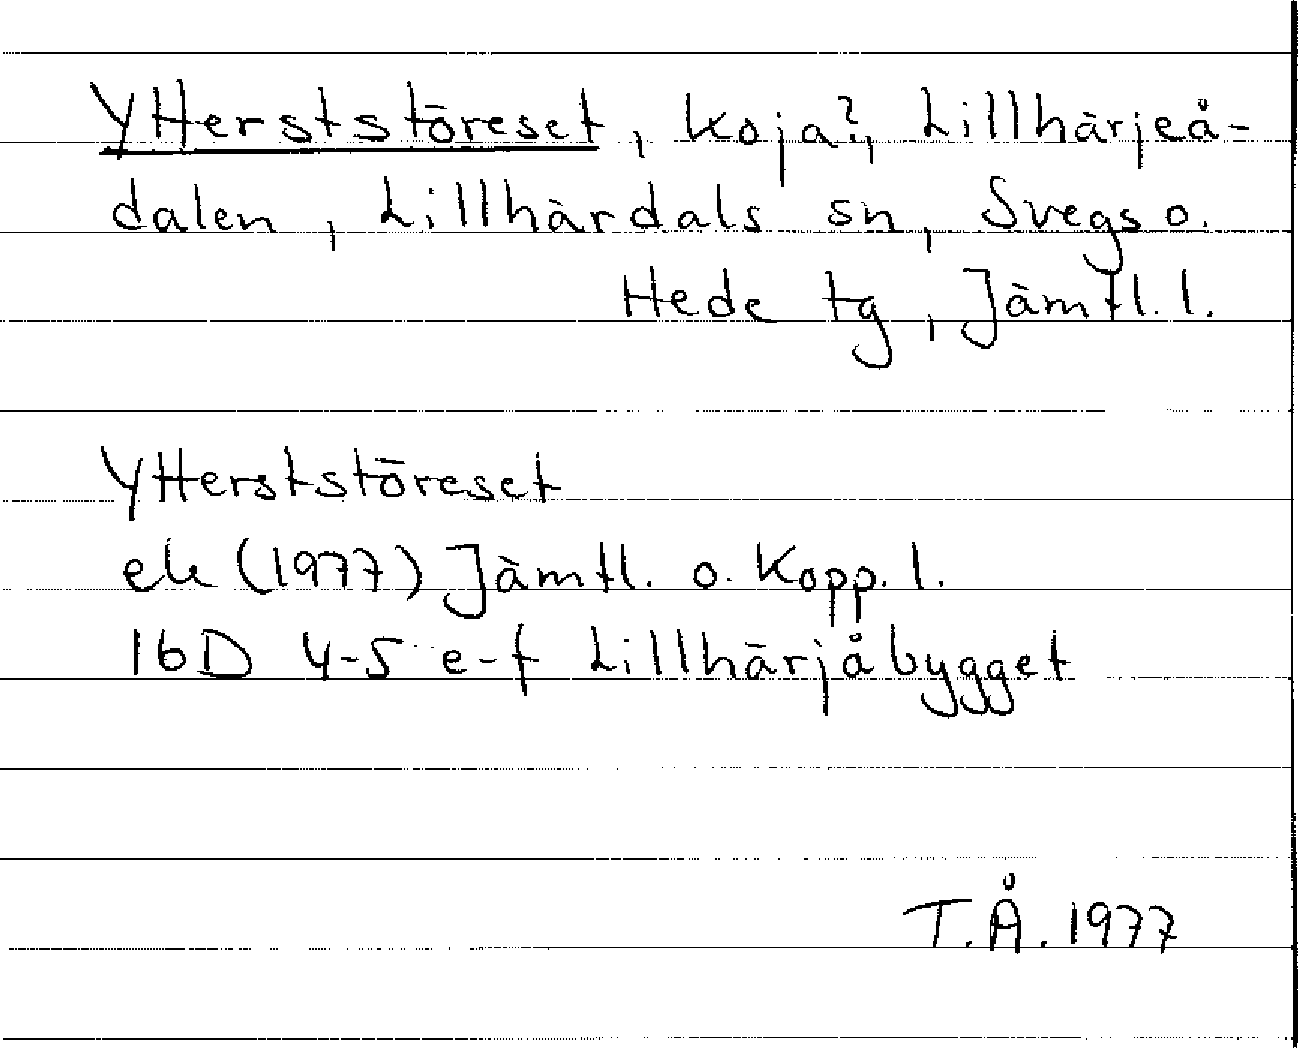 Ytterststöreset, koja?, Lillhärjeå-
dalen, Lillhärdals sn, Svegs o.
Hede tg, Jämtl. l.
Ytterststöreset
ek (1977) Jämtl. o. Kopp. l.
16D 4-5 e-f Lillhärjåbygget
T.Å. 1977